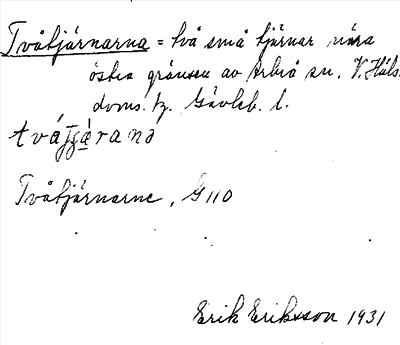 Tvåtjärnarna = två små tjärnar nära
östra gränsen av Arbrå sn. V. Häls.
doms. hg. Gävleb. l.
tvájɟæ̀rană
Tvåtjärnarne, G 110
Erik Eriksson 1931